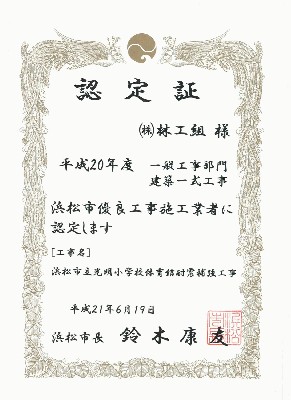 認定証
㈱林工組 様
平成20年度 一般工事部門
建築一式工事
浜松市優良工事施工業者に
認定します
[工事名]
浜松市立光明小学校体育館耐震補強工事
平成21年6月19日
浜松市長 鈴木康友